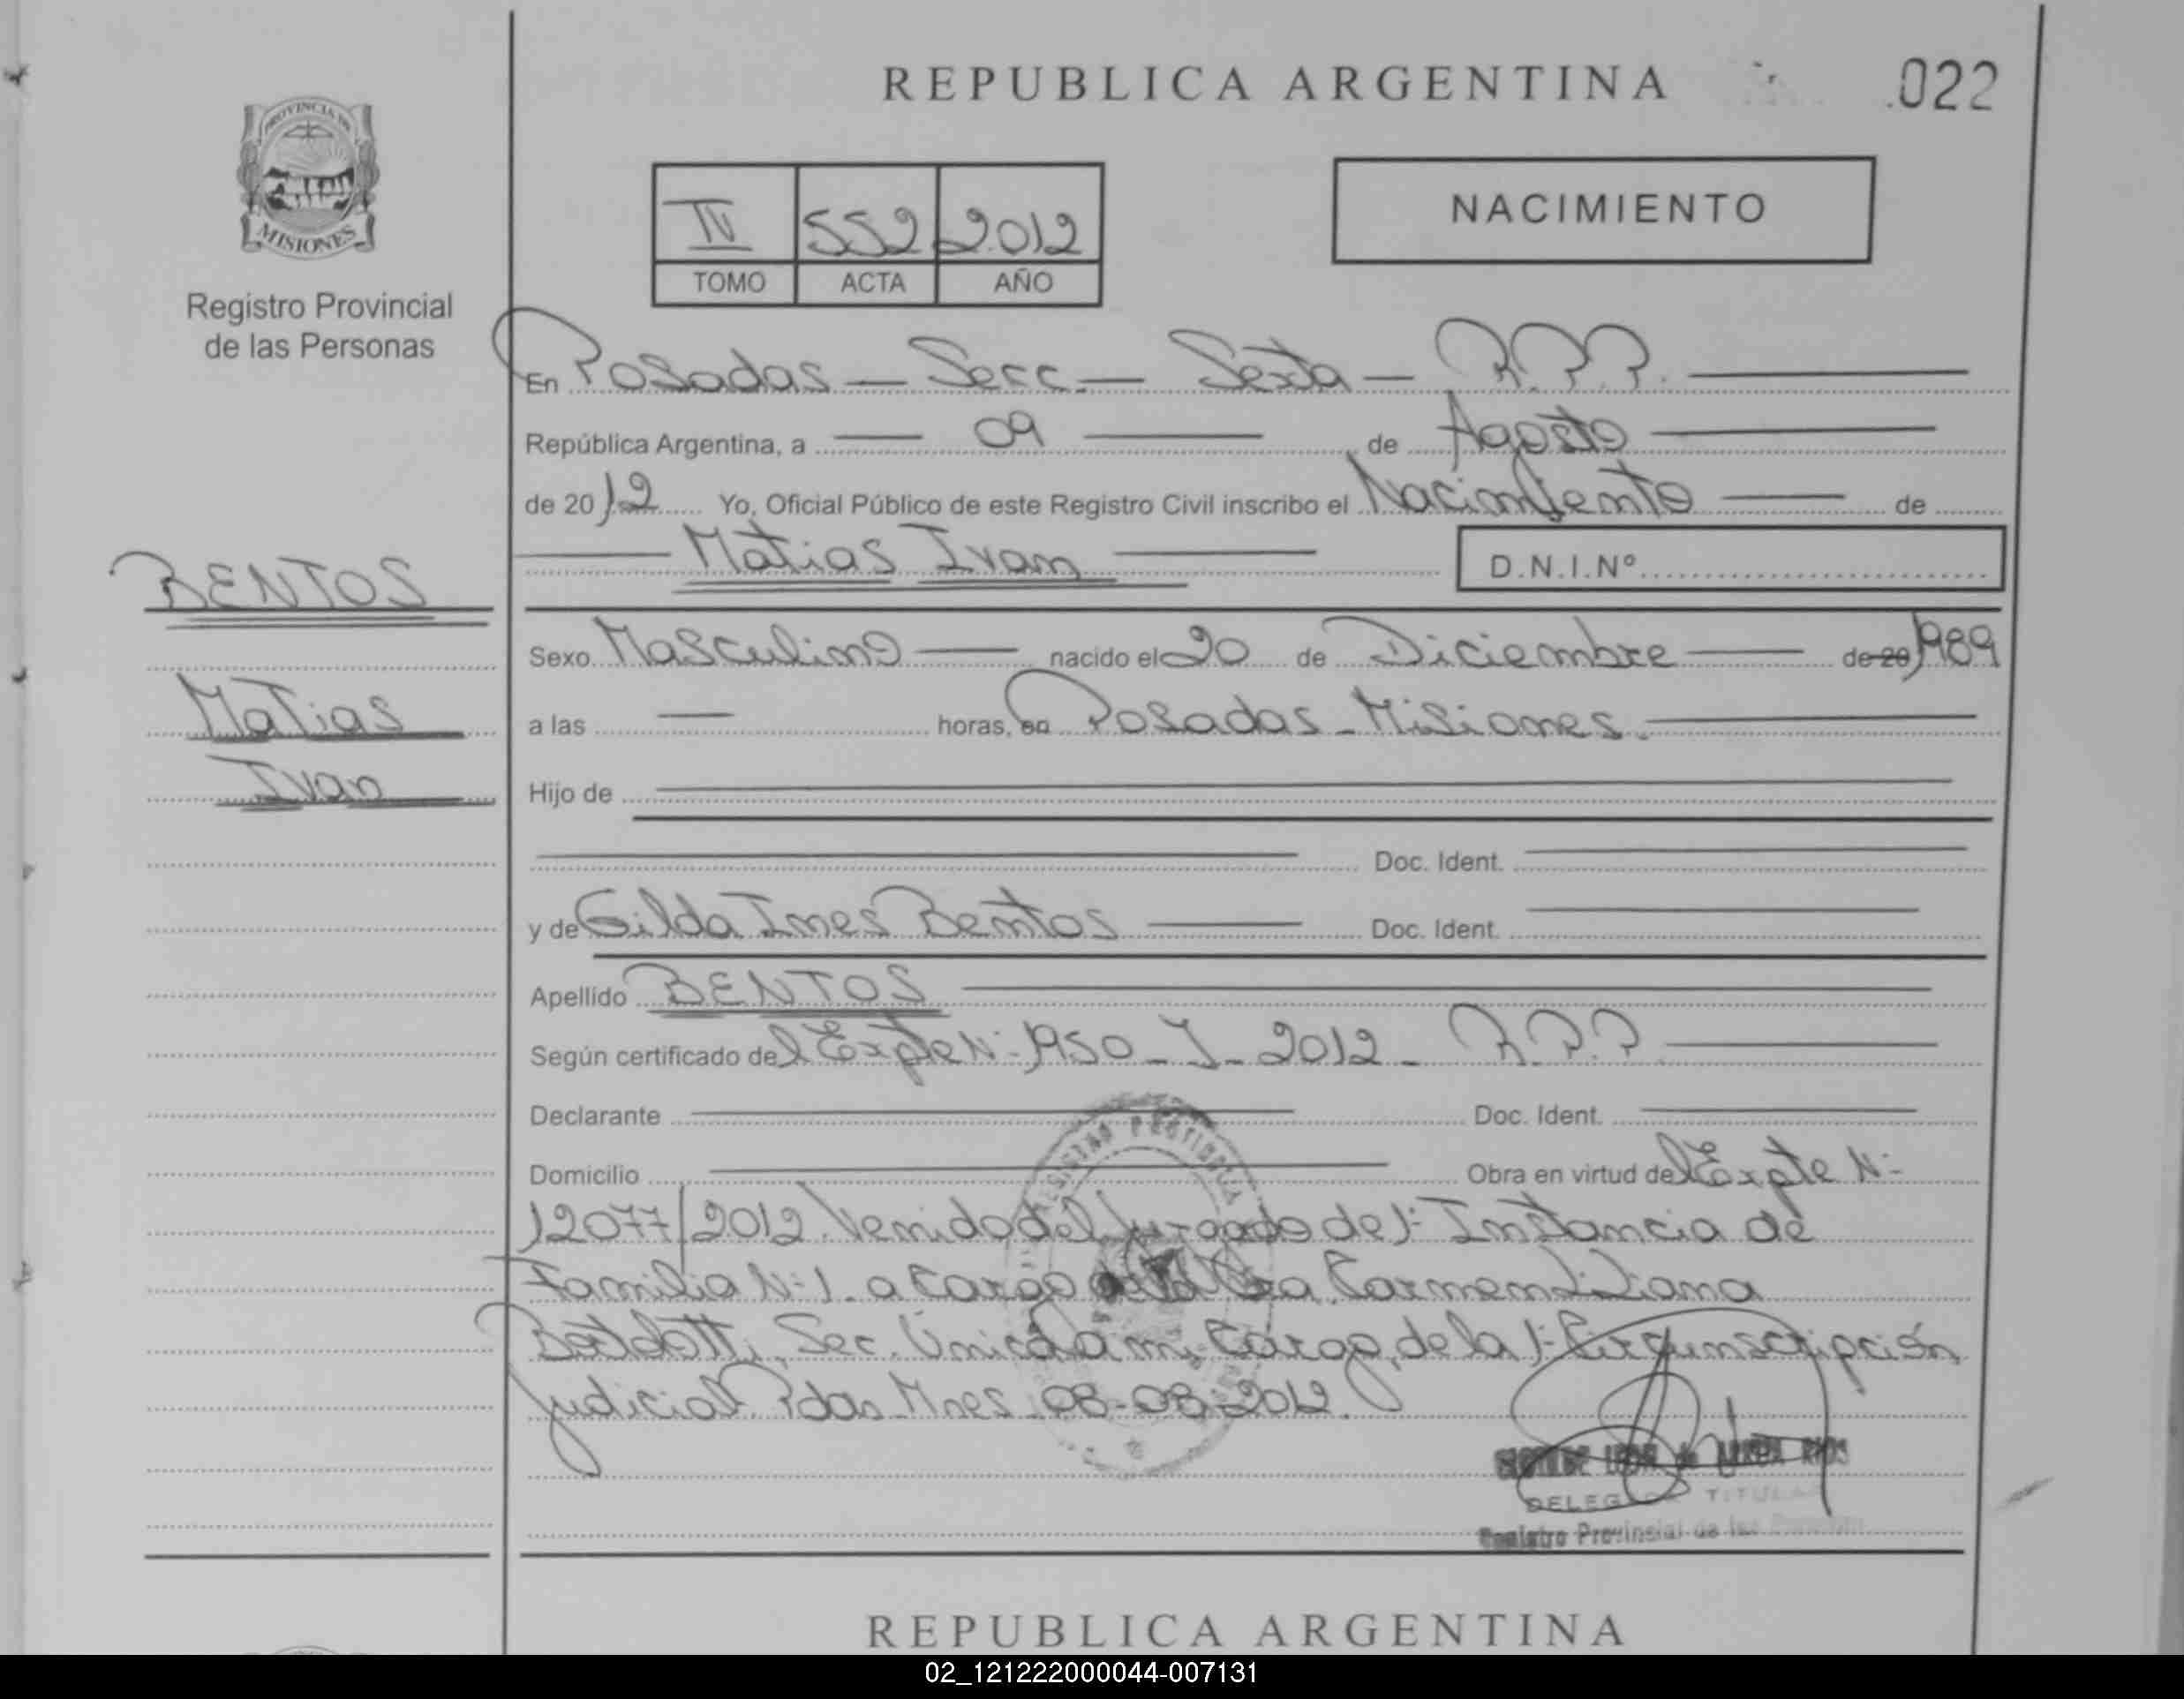 REPUBLICA ARGENTINA
.022
PROVINCIA DE
MISIONES
Registro Provincial
de las Personas
IV 552 2012
TOMO ACTA AÑO
NACIMIENTO
En Posadas - Secc. - Sexta - R.P.P.
República Argentina, a 09 de Agosto
de 2012 Yo, Oficial Público de este Registro Civil inscribo el Nacimiento de
Matias Ivan
D.N.I.Nº
BENTOS
Matias
Ivan
Sexo Masculino nacido el 20 de Diciembre de 20 1989
a las horas, en Posadas - Misiones.
Hijo de
Doc. Ident.
y de Gilda Ines Bentos Doc. Ident.
Apellído BENTOS
Según certificado del Expte N- 1950 - J - 2012 - R.P.P.
Declarante Doc. Ident.
Domicilio Obra en virtud del Expte N-
12077/2012. Venido del Juzgado de 1- Instancia de
Familia N-1. a Cargo de la Dra. Carmen Liliana
Sec. Única a mi Cargo, de la 1- Circunscripción
Judicial. Pdas Mnes 08-08-2012.
DELEGADA TITULAR
Registro Provincial de las Personas
REPUBLICA ARGENTINA
02_121222000044-007131